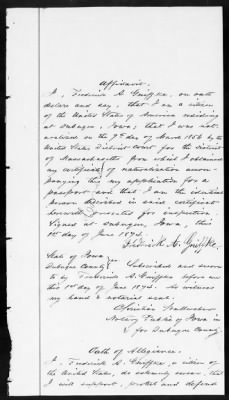 Affidavit.
I, Frederick A. Gniffke, on oath
declare and say, that I am a citizen
of the United States of America residing
at Dubuque, Iowa; that I was nat-
uralized on the 7th day of March 1856 by the
United States District Court for the District
of Massachusetts from which I obtained
my certificate of naturalization accom-
panying this my application for a
passport and that I am the identical
person described in said certificate
herewith presented for inspection
Signed at Dubuque, Iowa, this
1st day of June 1894.
Frederick A. Gniffke.
State of Iowa
Dubuque County } ss. Subscribed and sworn
to by Frederick A. Gniffke before me
this 1st day of June 1894. As witness
my hand & notarial seal.
Notary Public of Iowa in
& for Dubuque County
Oath of Allegiance.
I, Frederick A. Gniffke, a citizen of
the United States, do solemnly swear, that
I will support, protect and defend